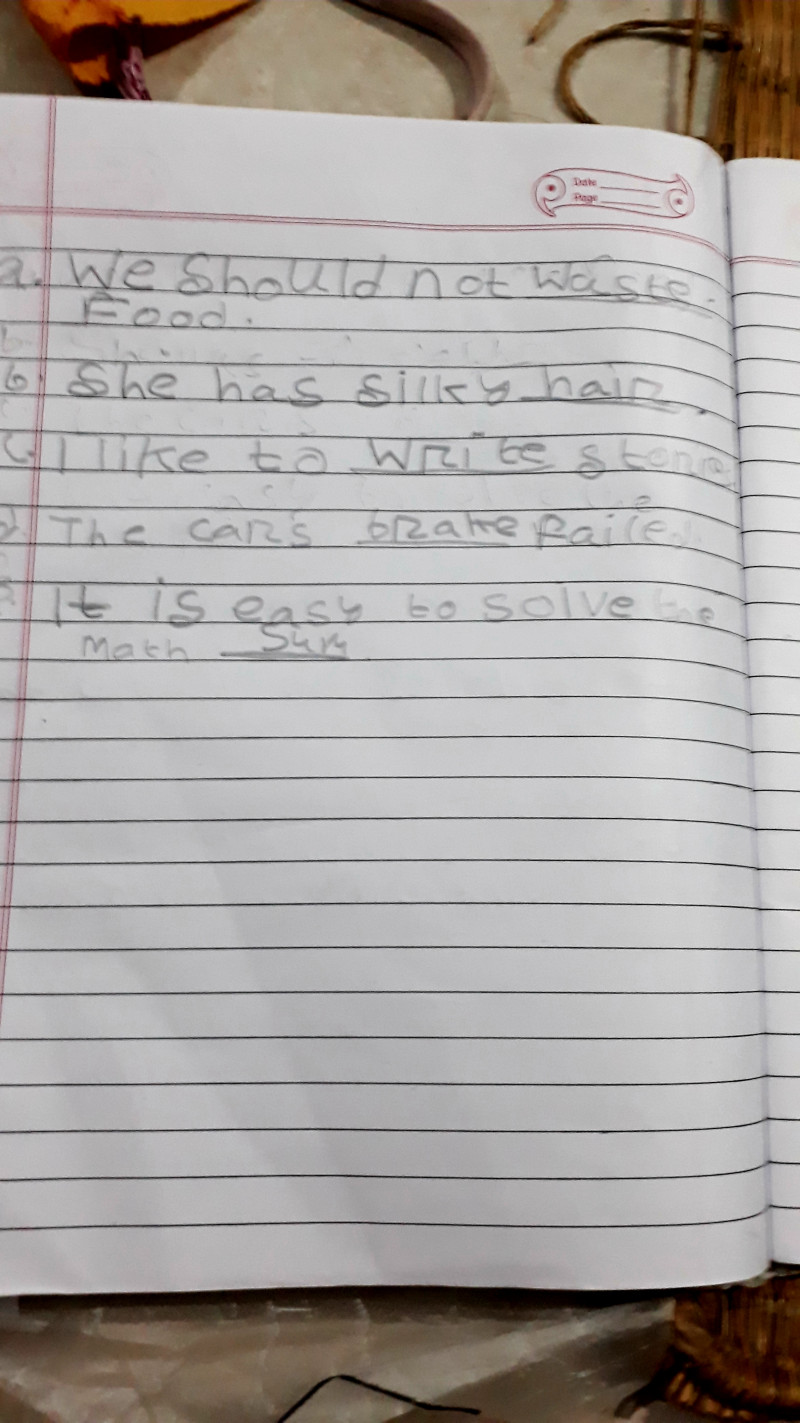 Date
Page
a. We Should not waste.
Food.
b. She has silky hair.
c. I like to write
d. The cars brake
It is easy to solve the
Math Sum